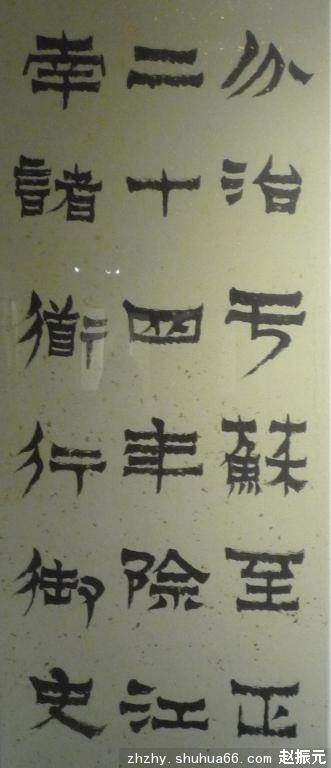 分治于蘇至正
二十四年除江
南諸衟行御史
zhzhy.shuhua66.com 赵振元